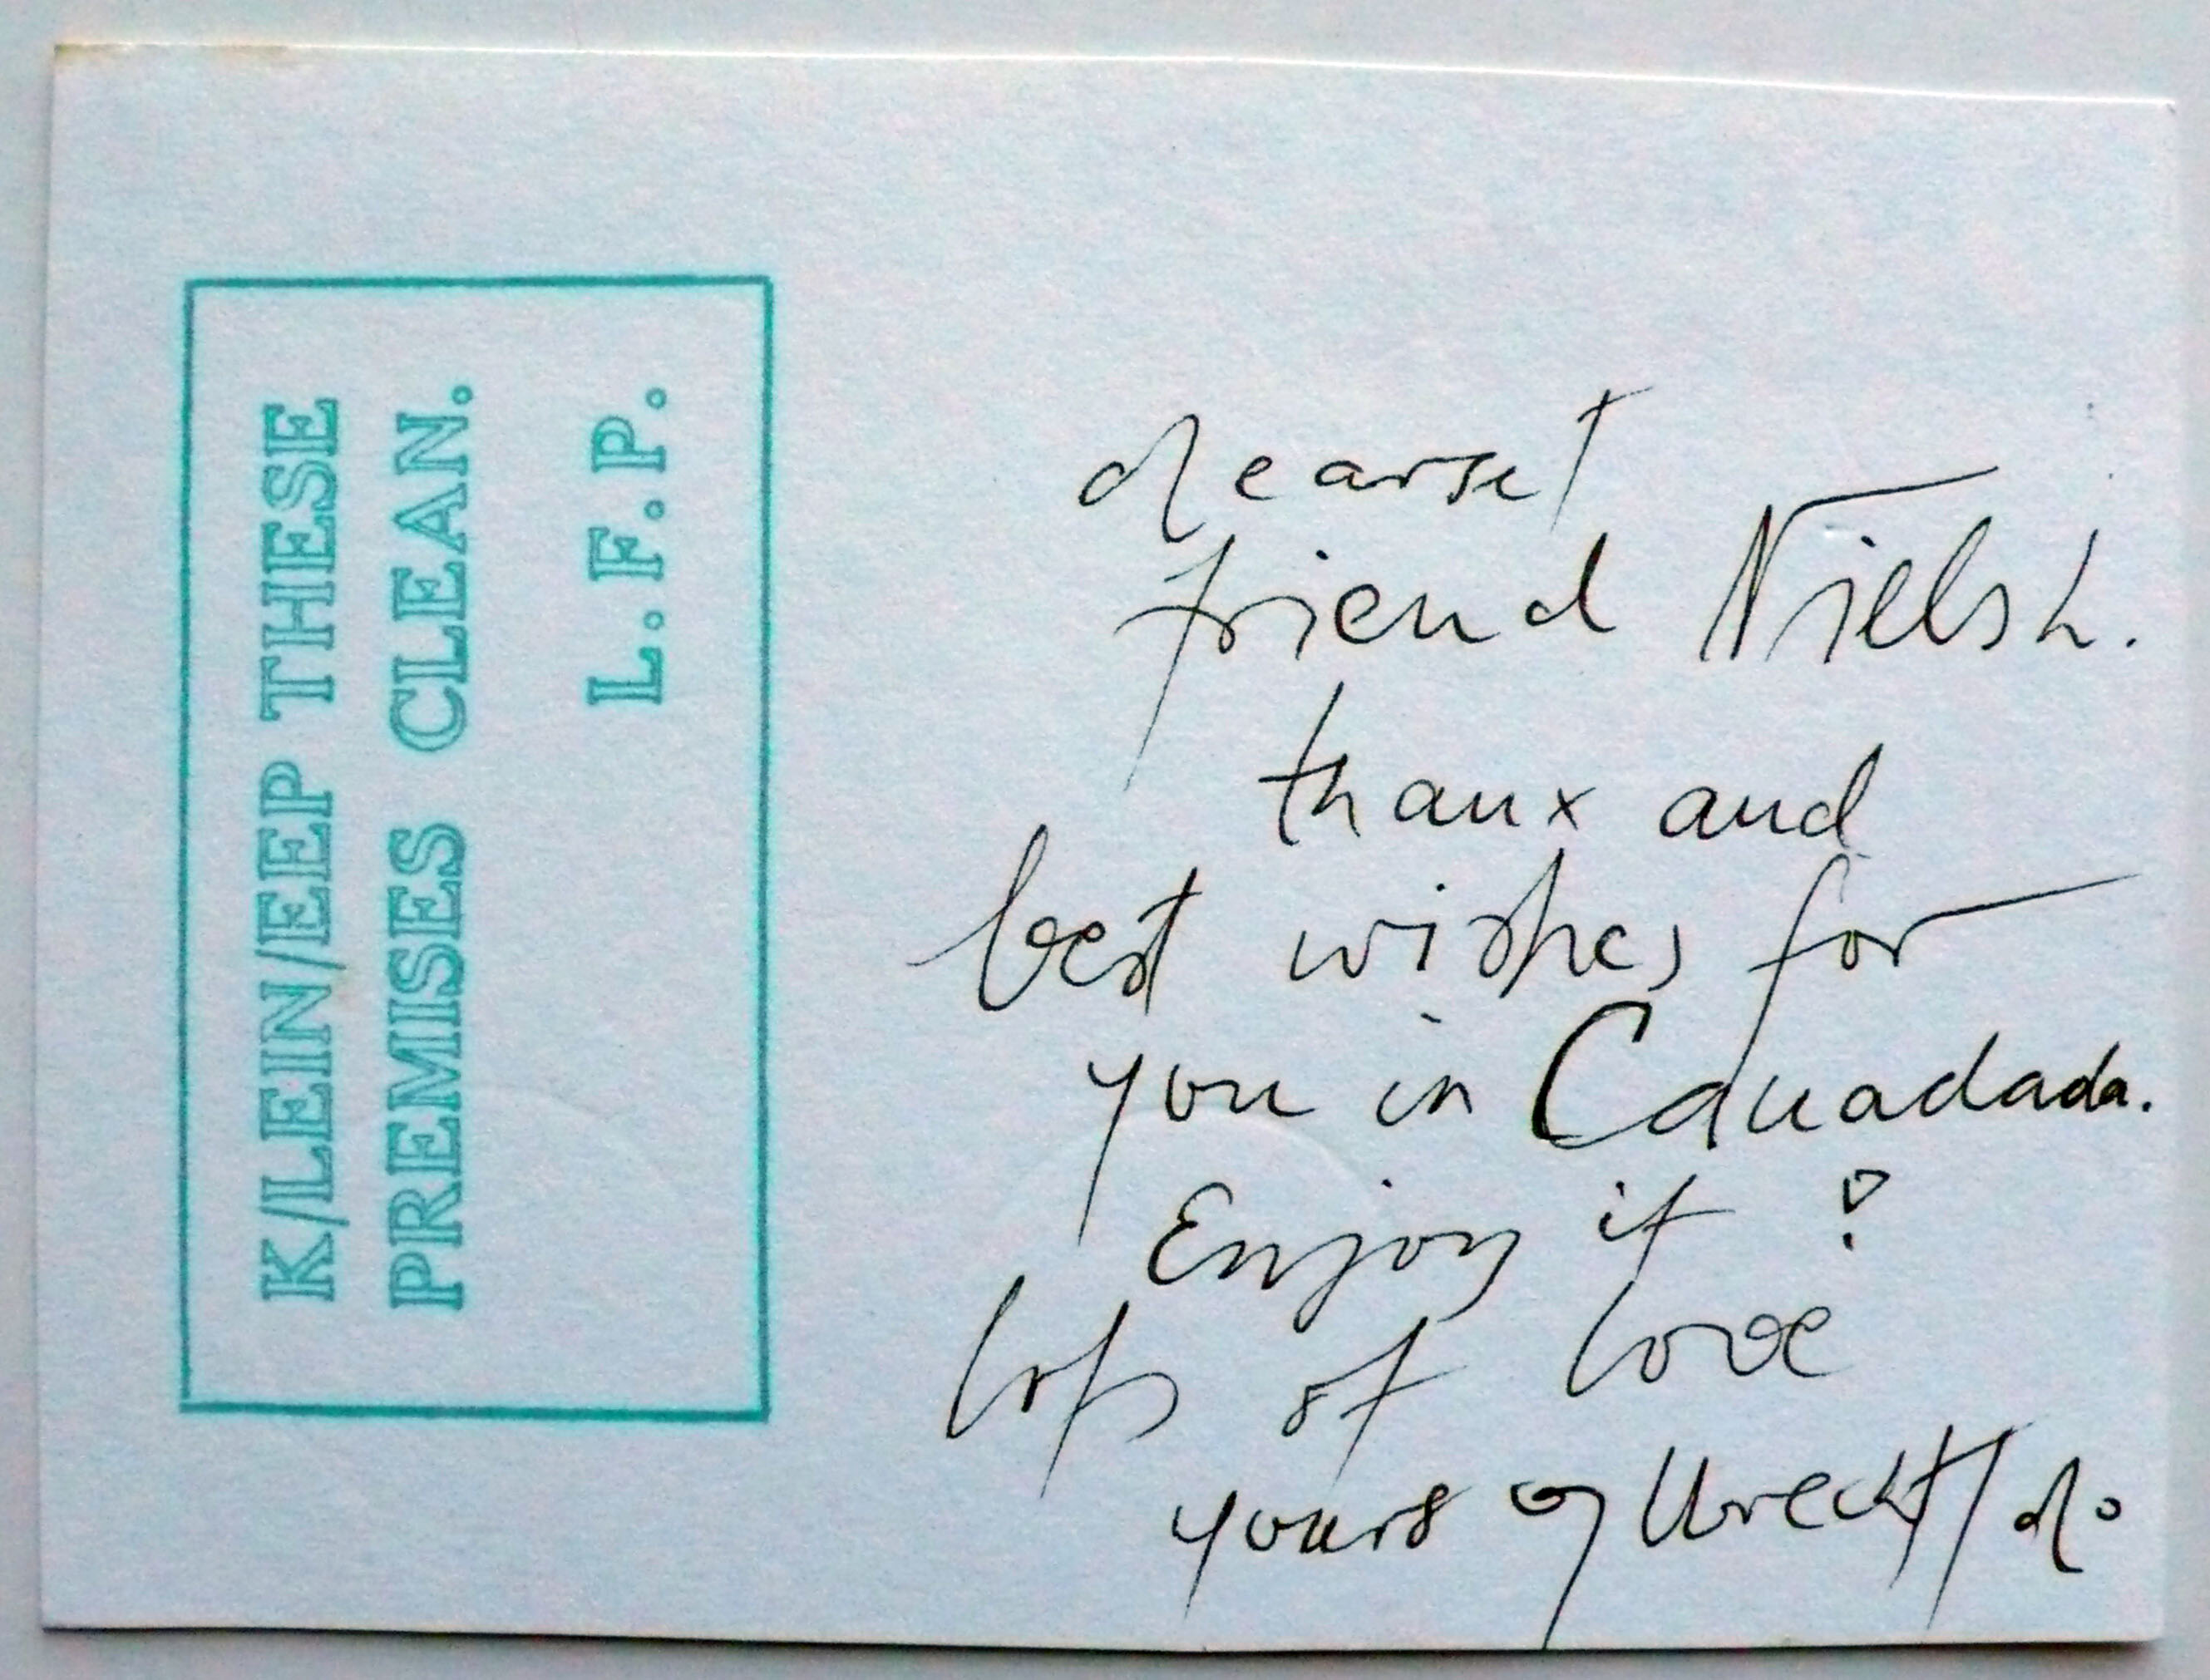 K/LEIN/EEP THESE
PREMISES CLEAN.
L.F.P.
dearset
friend Niels L.
thanx and
best wishes for
you in Canadada.
Enjoy it!
lots of love
yours